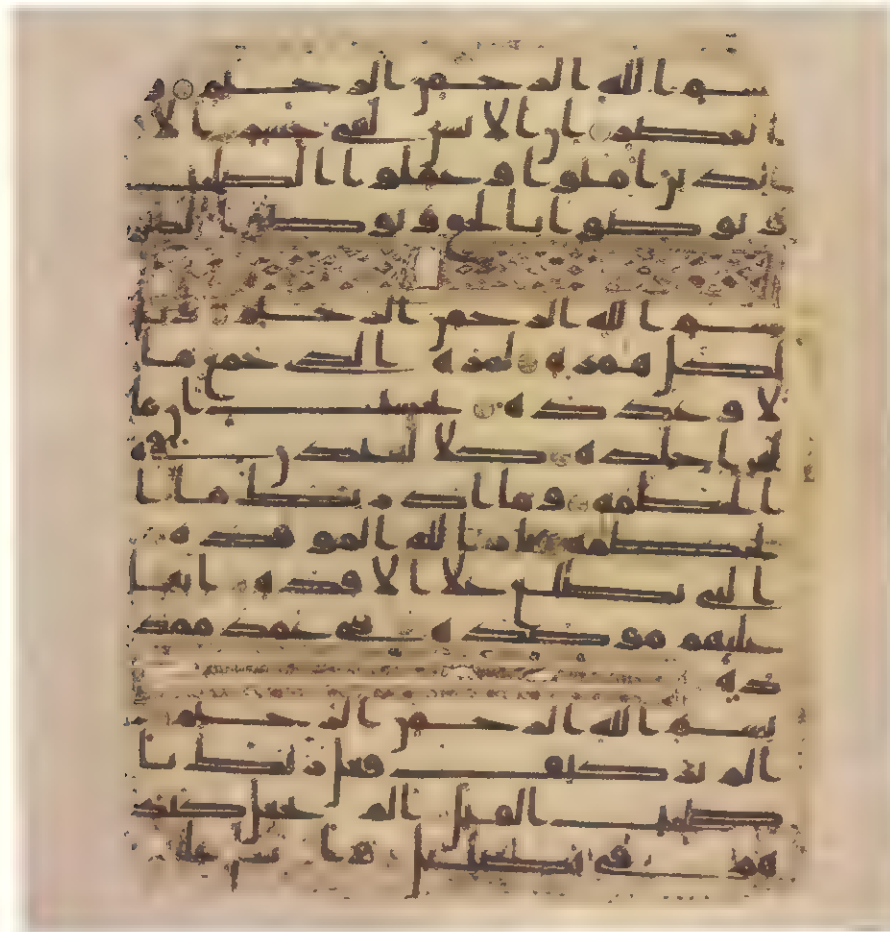 بسم الله الرحمن الرحيم و
العصر ان الانسن لفى خسر الا
الذين امنوا و عملوا الصلحت
و تواصوا بالحق و تواصوا بالصبر
بسم الله الرحمن الرحيم ويل
لكل همزة لمزة الذى جمع ما
لا و عدده يحسب ان ما
له اخلده كلا لينبذن فى
الحطمة وما ادرىك ما ا
لحطمة نار الله الموقدة
التى تطلع على الافدة انها
عليهم موصدة فى عمد ممد
دة
بسم الله الرحمن الرحيم
الم تر كيف فعل ربك با
صحب الفيل الم يجعل كيد
هم فى تضليل وارسل علـ